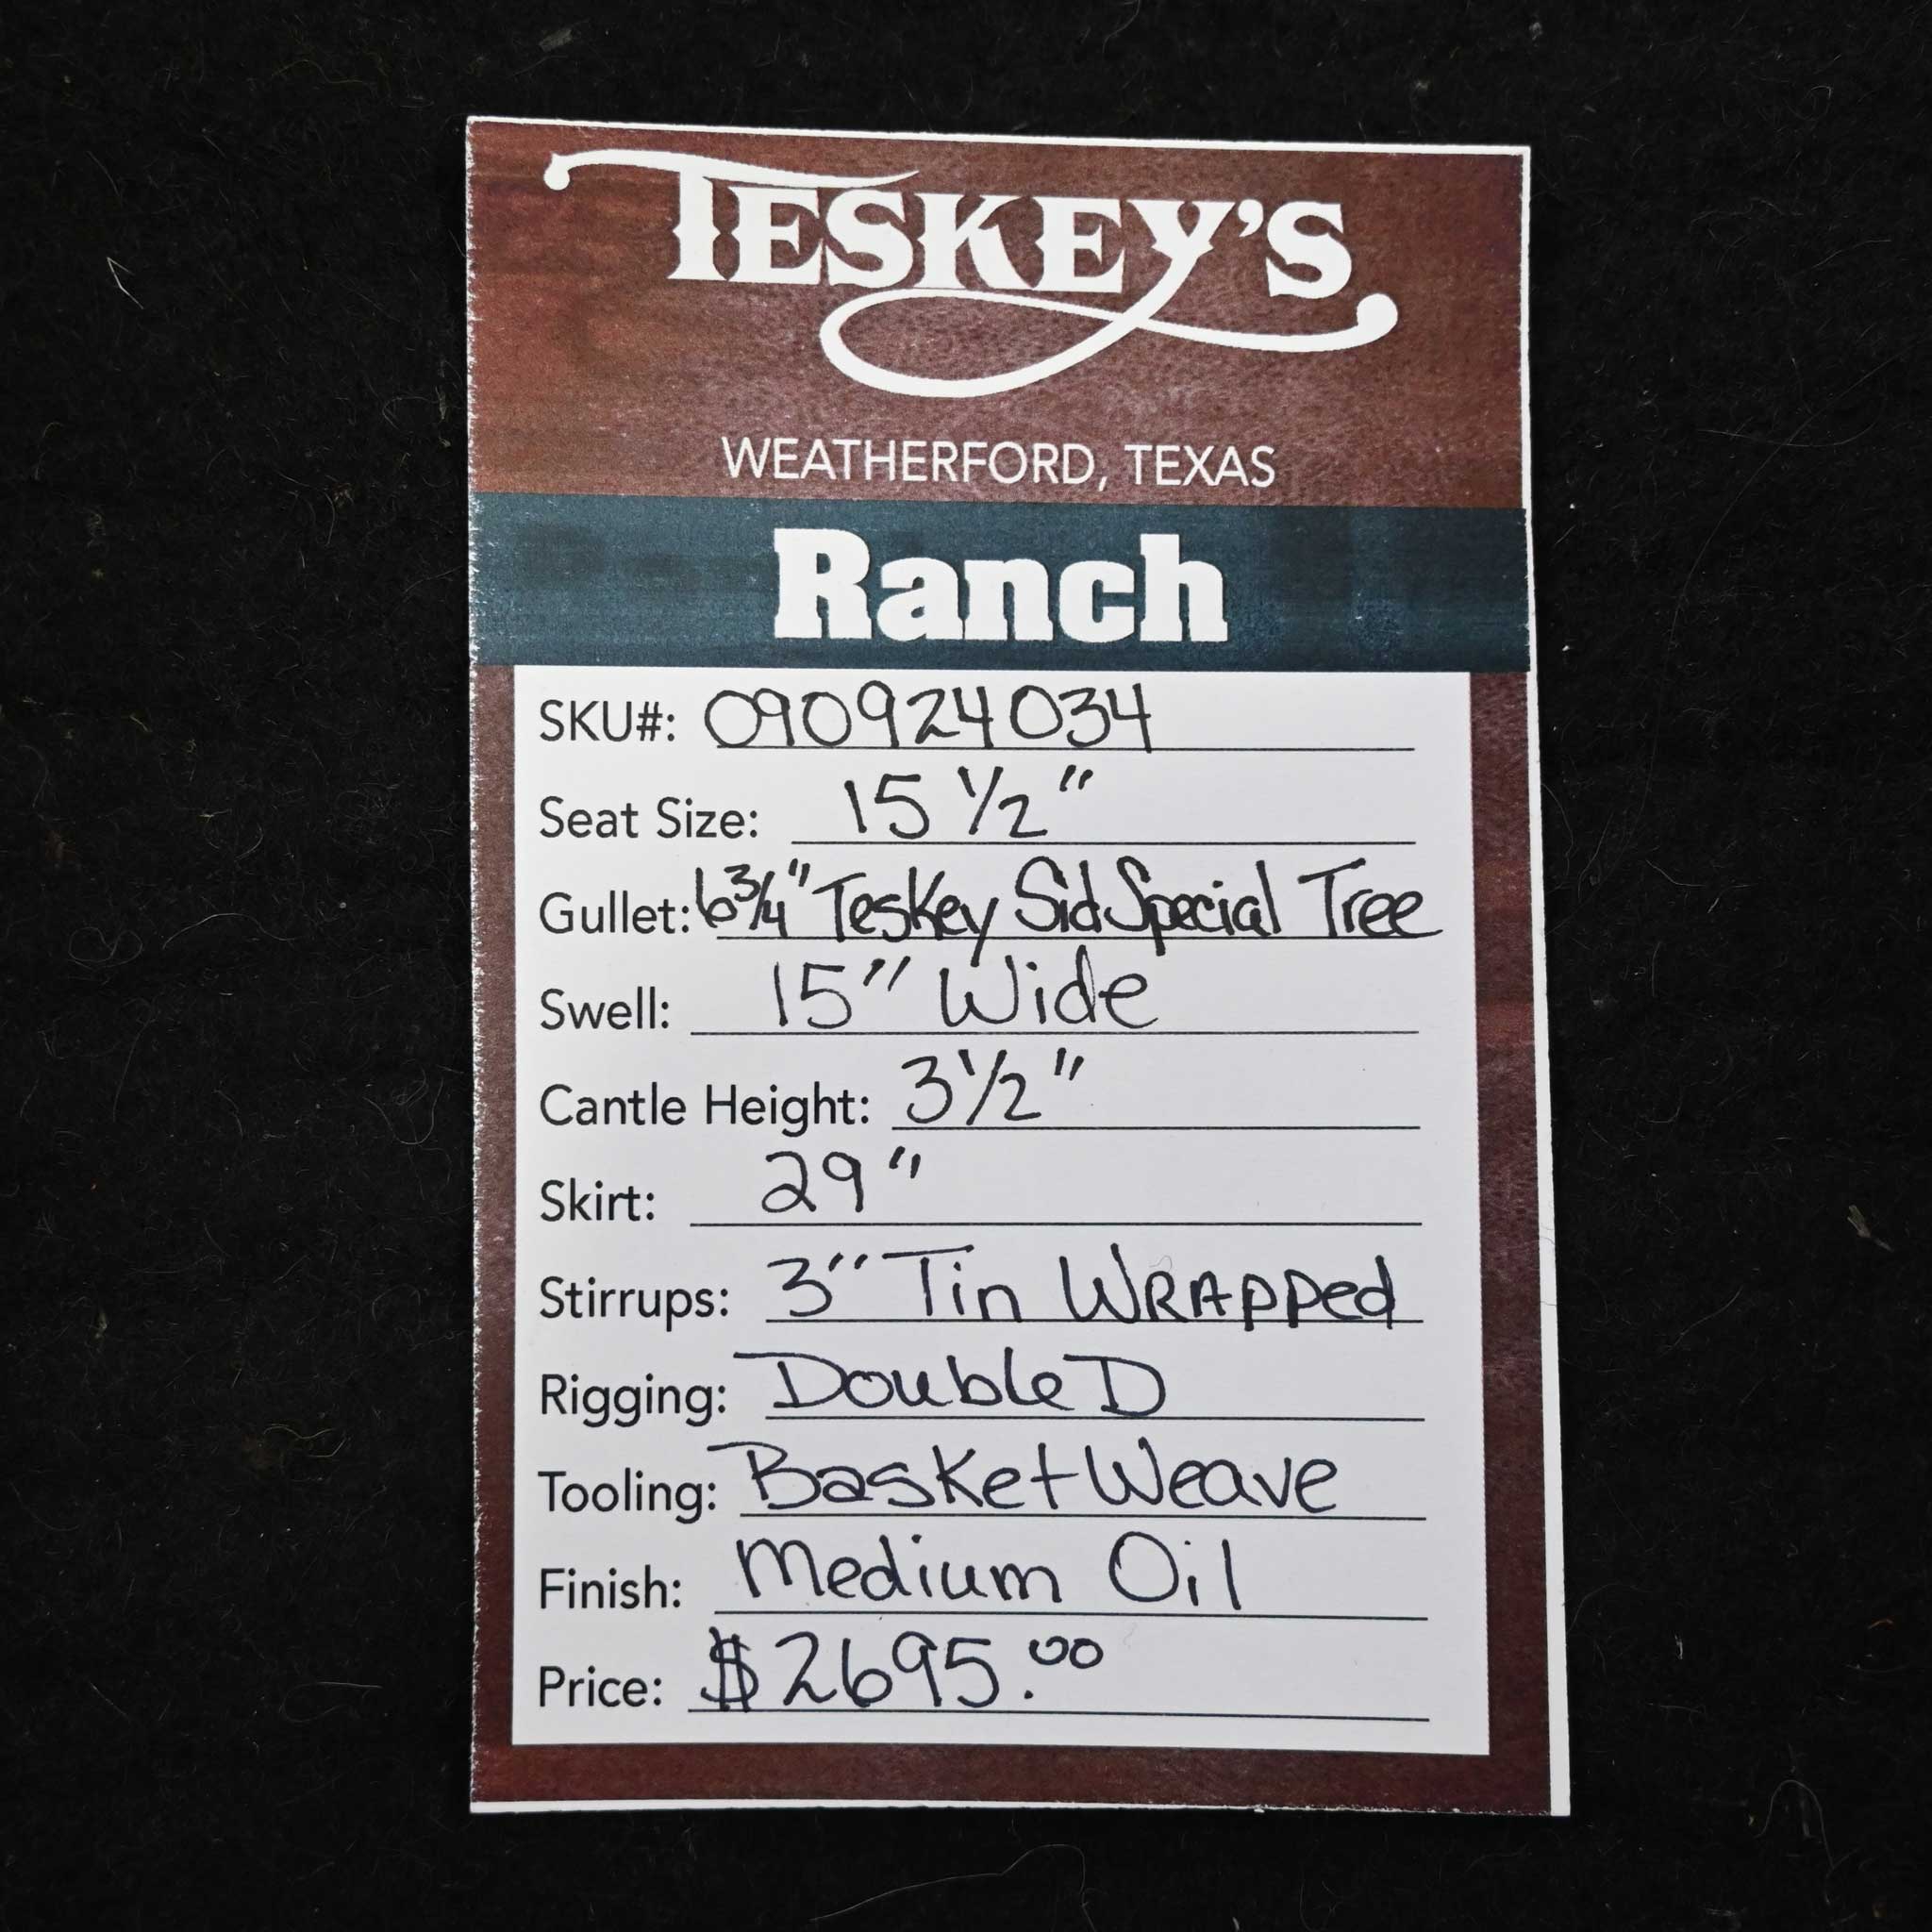 TESKEY'S
WEATHERFORD, TEXAS
Ranch
SKU#: 090924034
Seat Size: 15 1/2"
Gullet: 6 3/4" Teskey Sid Special Tree
Swell: 15" Wide
Cantle Height: 3 1/2"
Skirt: 29"
Stirrups: 3" Tin WRAPPed
Rigging: Double D
Tooling: Basket Weave
Finish: Medium Oil
Price: $2695.00